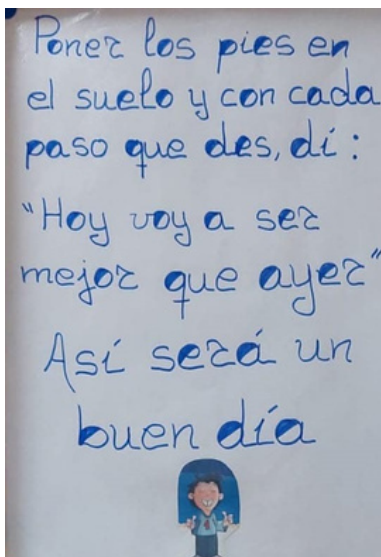 Poner los pies en
el suelo y con cada
paso que des, dí:
"Hoy voy a ser
mejor que ayer"
Así será un
buen día